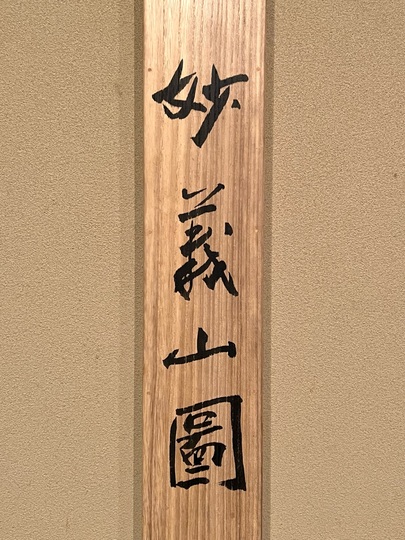 妙義山圖